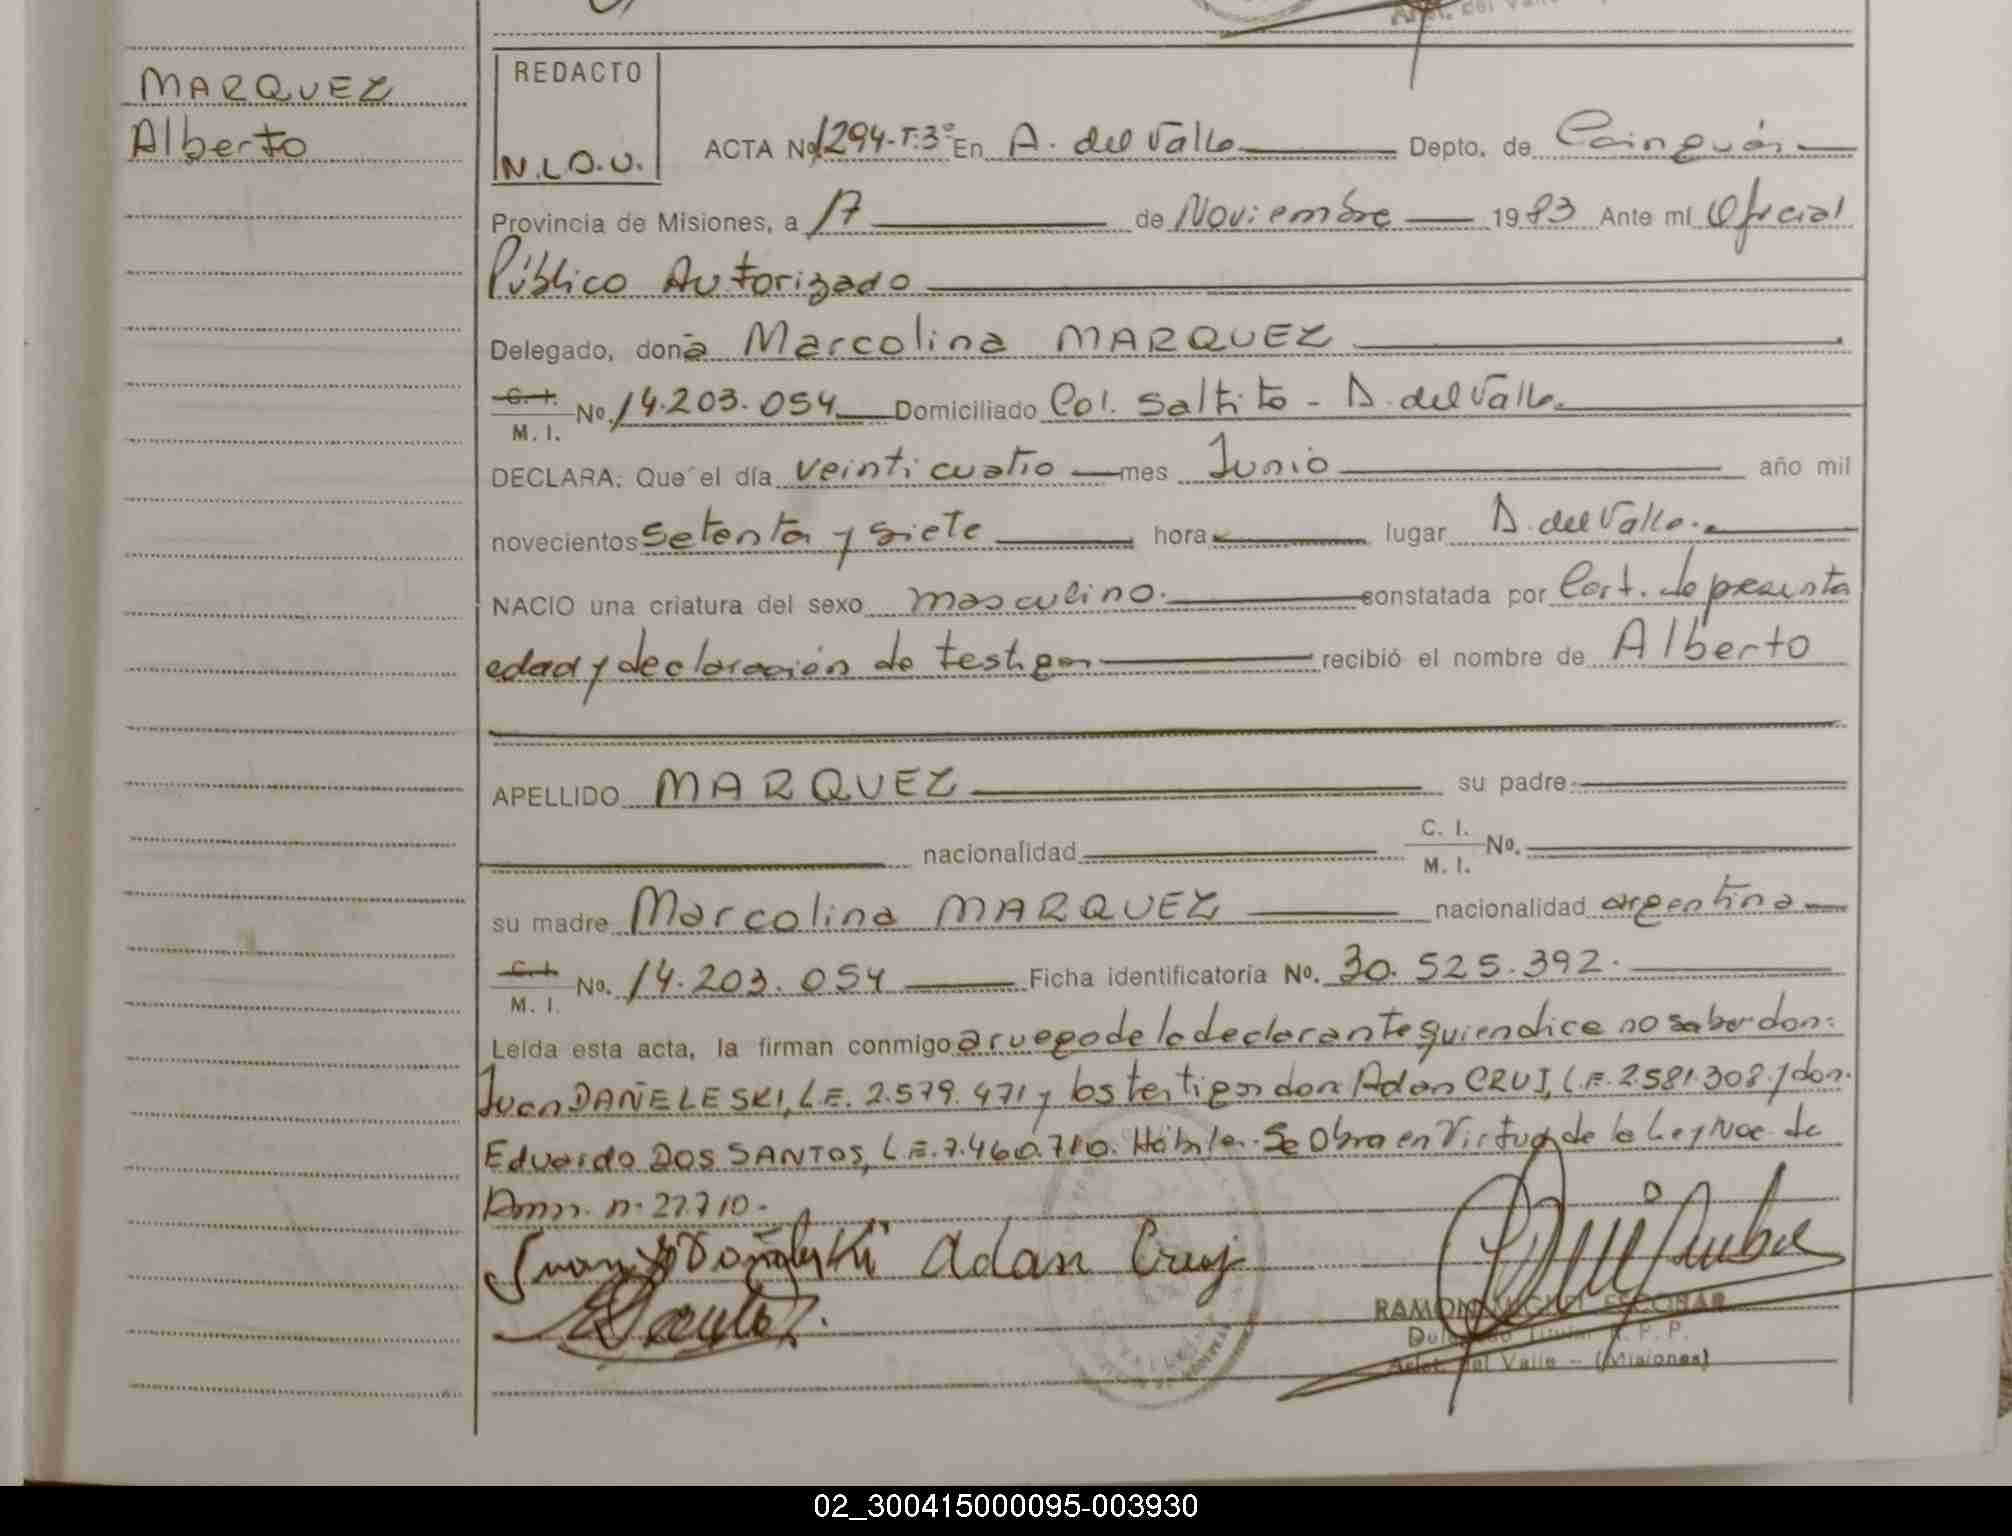 MARQUEZ
Alberto
REDACTO
N.L.O.U.
ACTA Nº 1294-T:3º En A. del Valle Depto. de Cainguás
Provincia de Misiones, a 17 de Noviembre 1983 Ante mí Oficial
Público Autorizado
Delegado, doña Marcolina MARQUEZ
C. I. M. I. Nº. 14.203.054 Domiciliado Col. Saltito - A. del Valle.
DECLARA: Que el día veinticuatro mes Junio año mil
novecientos setenta y siete hora lugar A. del Valle.
NACIO una criatura del sexo masculino. constatada por Cert. de presunta
edad y declaración de testigos recibió el nombre de Alberto
APELLIDO MARQUEZ su padre
nacionalidad C. I. M. I. Nº.
su madre Marcolina MARQUEZ nacionalidad argentina
C. I. M. I. Nº. 14.203.054 Ficha identificatoria Nº. 30.525.392.
Leída esta acta, la firman conmigo a ruego de la declarante quien dice no saber don:
Juan DAÑELESKI, L.E. 2.579.471 y los testigos don: Adan CRUJ, L.E. 2.581.308. y don.
Eduardo DOS SANTOS, L.E. 7.460.710. Hábiles. Se Obra en Virtud de la Ley Nac. de
Amn. n. 22.710.-
Juan Adan Cruj
RAMON MIGUEL ESCOBAR
Delegado Titular R. P. P.
Arist. del Valle - (Misiones)
02_300415000095-003930